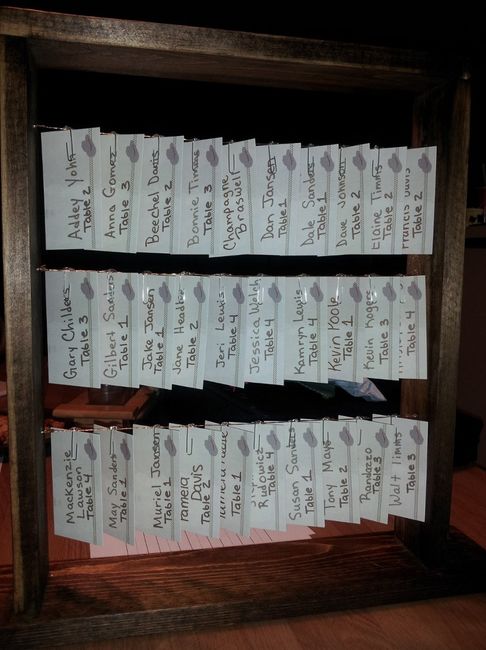 Addey Yohn
Table 2
Anna Gomez
Table 3
Beechel Davis
Table 2
Bonnie Timms
Table 3
Champagne
Braswell
Dan Jansen
Table 1
Dale Sanders
Table 1
Dave Johnson
Table 2
Elaine Timms
Table 2
Francis Davis
Table 2
Gary Childers
Table 3
Gilbert Sanders
Table 1
Jake Jansen
Table 1
Jane Headley
Table 2
Jeri Lewis
Table 4
Jessica Welch
Table 4
Kamryn Lewis
Table 4
Kevin Poole
Table 1
Kevin Rogers
Table 3
Table 4
Mackenzie
Lawson
Table 4
May Sanders
Table 1
Muriel Jansen
Table 1
Pamela
Davis
Table 2
Table 1
Rudowicz
Table 4
Susan Sanders
Table 1
Tony Mays
Table 2
Randazzo
Table 3
Walt Timms
Table 3